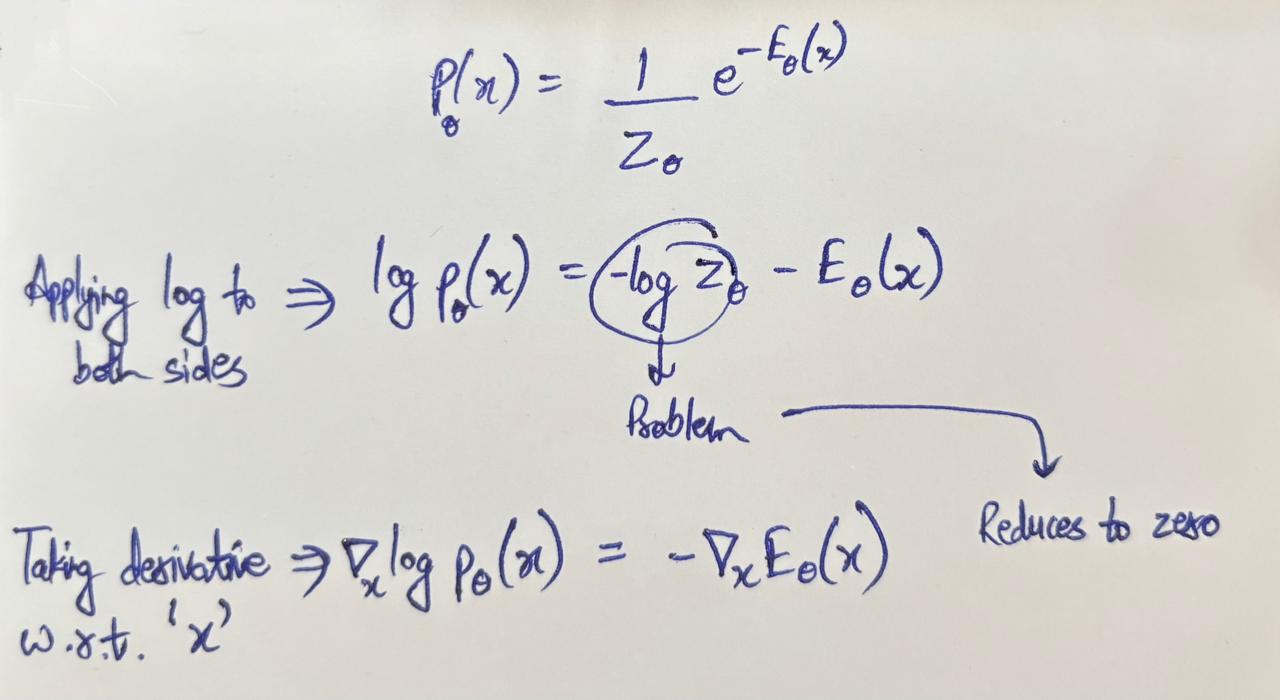 P_θ(x) = 1/Z_θ e^{-E_θ(x)}
Applying log to both sides ⇒ log p_θ(x) = -log Z_θ - E_θ(x)
↓
Problem →
Reduces to zero
Taking derivative w.r.t. 'x' ⇒ ∇_x log p_θ(x) = -∇_x E_θ(x)